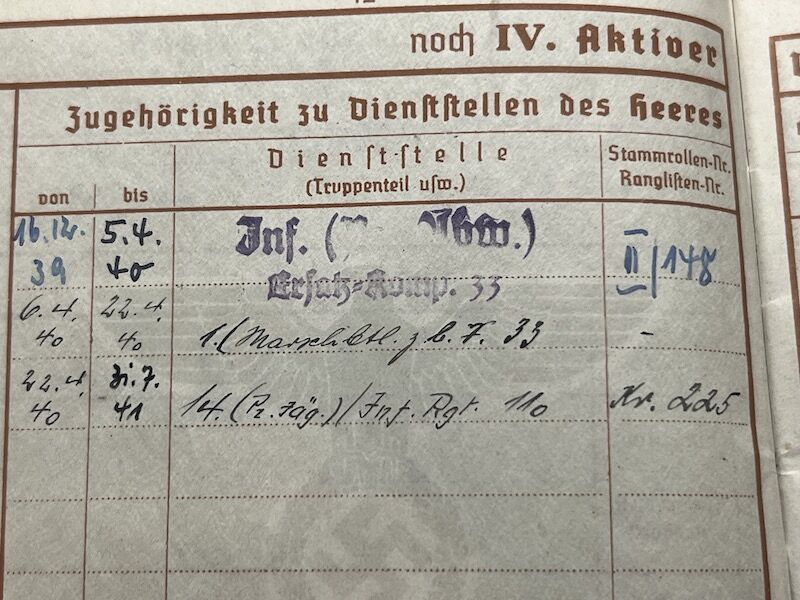 noch IV. Aktiver
Zugehörigkeit zu Dienststellen des Heeres
von
bis
Dienststelle
(Truppenteil usw.)
Stammrollen-Nr.
Ranglisten-Nr.
16.12. 39
5.4. 40
Inf. ( Abw.)
Ersatz-Komp. 33
II/148
6.4. 40
22.4. 40
1.(Marschbtl. z. b. V. 33
-
22.4. 40
41
14. (Pz. Jäg.)/Inf. Rgt. 110
Nr. 225